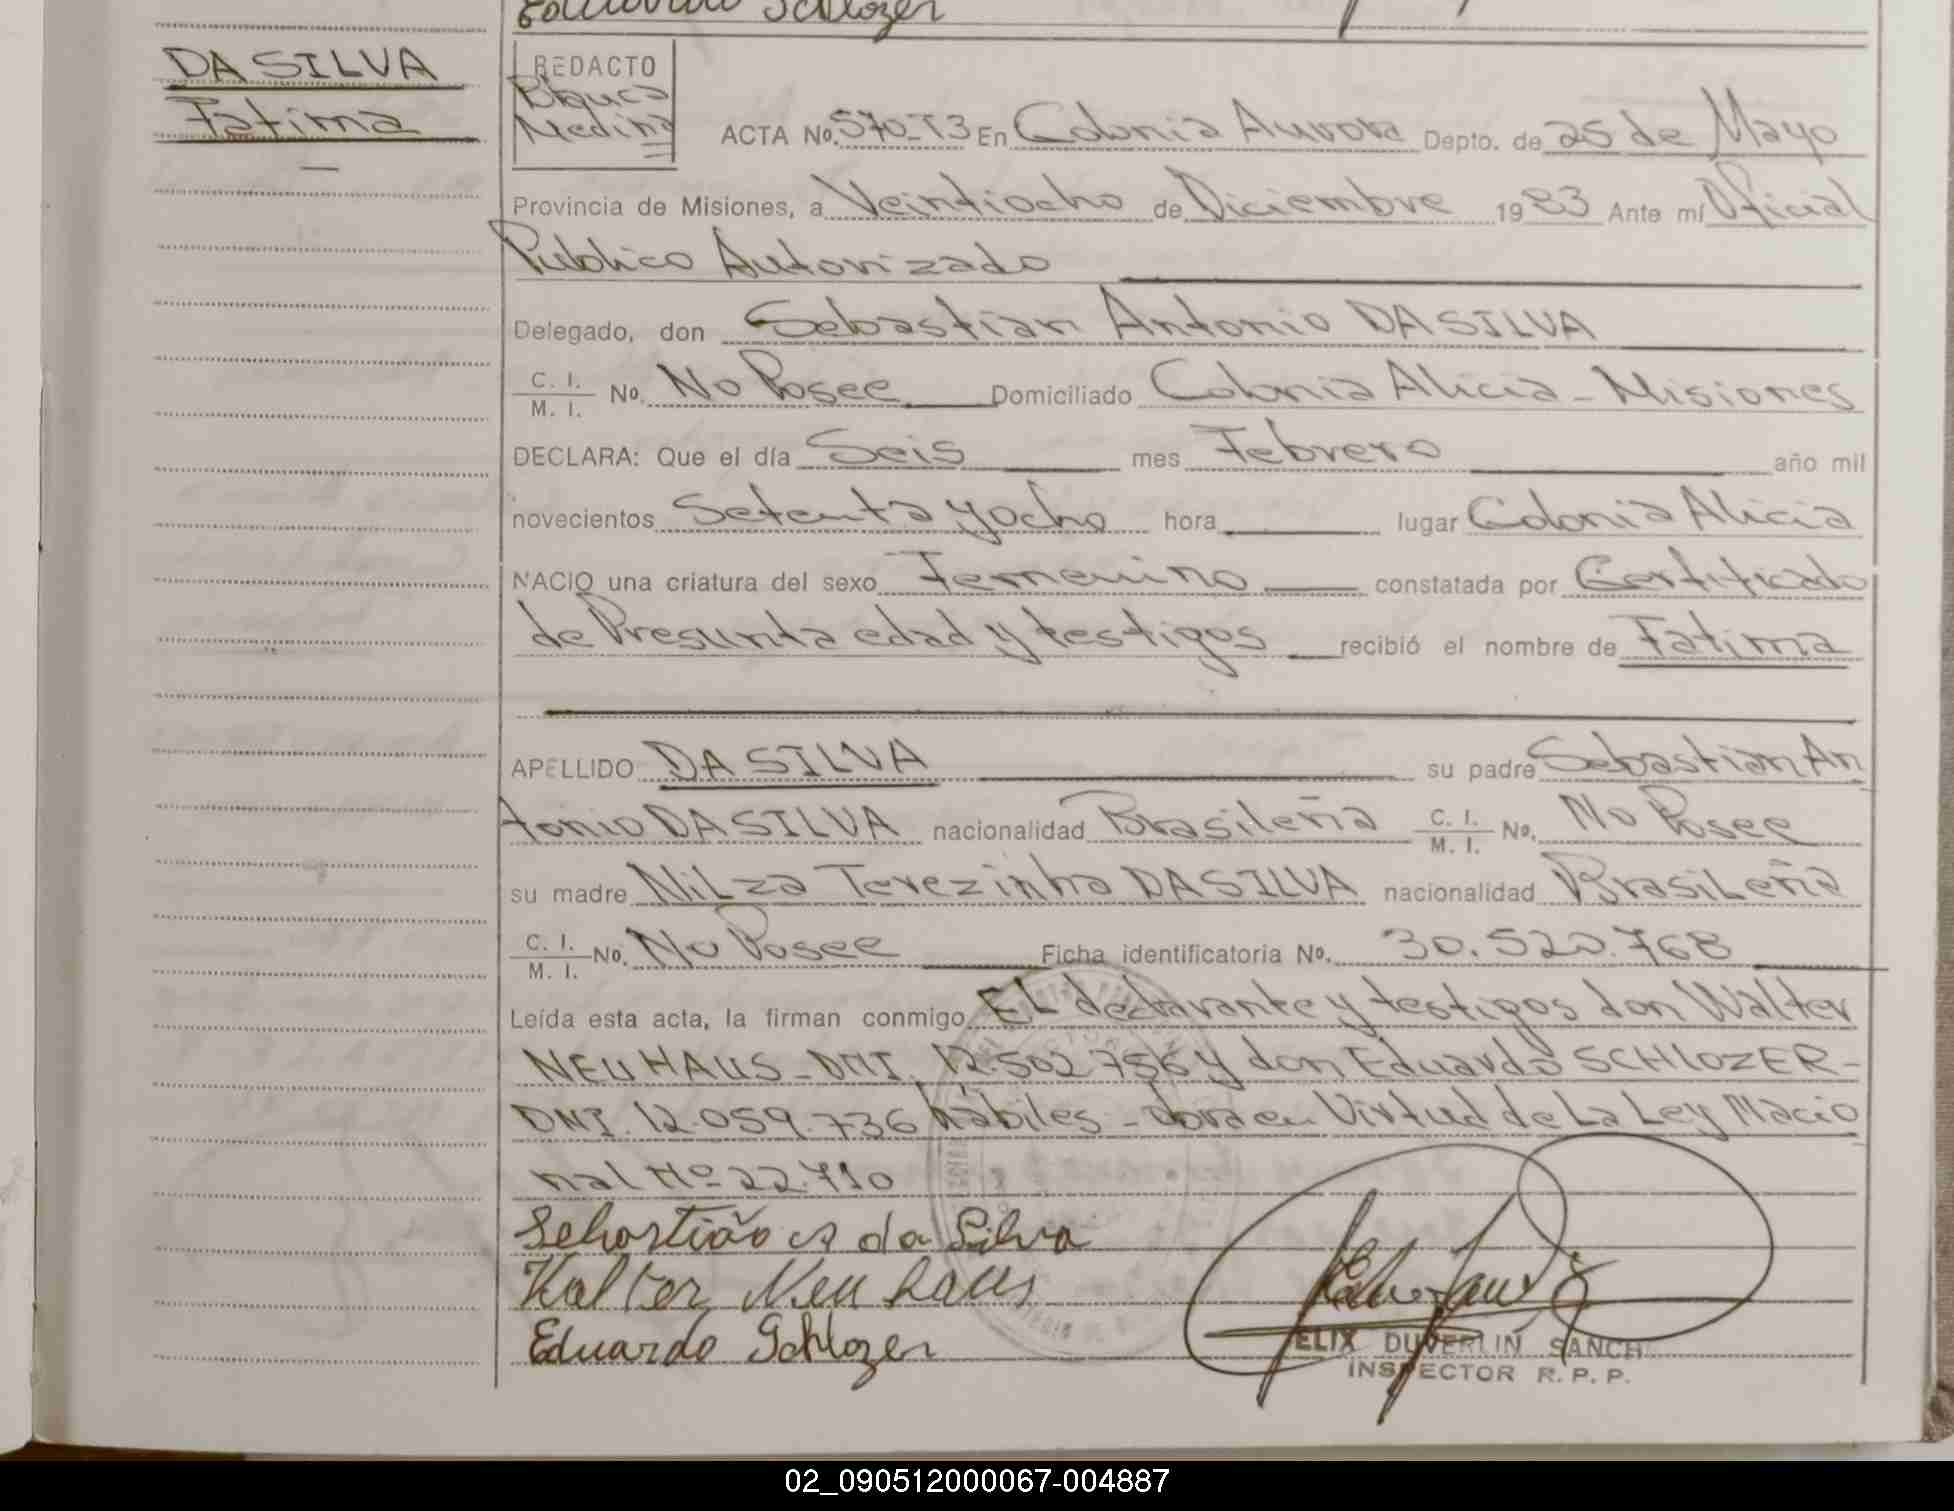 Eduardo Schlozer
DA SILVA
Fatima
REDACTO
Blanca
Medina
ACTA No. 570-T3 En Colonia Aurora Depto. de 25 de Mayo
Provincia de Misiones, a Veintiocho de Diciembre 1983 Ante mí Oficial
Publico Autorizado
Delegado, don Sebastian Antonio DA SILVA
C. I. / M. I. No. No Posee Domiciliado Colonia Alicia - Misiones
DECLARA: Que el día Seis mes Febrero año mil
novecientos Setenta y ocho hora lugar Colonia Alicia
NACIO una criatura del sexo Femenino constatada por Certificado
de Presunta edad y testigos recibió el nombre de Fatima
APELLIDO DA SILVA su padre Sebastian An
tonio DA SILVA nacionalidad Brasileña C. I. / M. I. No. No Posee
su madre Nilza Terezinha DA SILVA nacionalidad Brasileña
C. I. / M. I. No. No Posee Ficha identificatoria No. 30.520.768
Leída esta acta, la firman conmigo El declarante y testigos don Walter
NEUHAUS - DNI. 12.502.756 y don Eduardo SCHLOZER -
DNI. 12.059.736 hábiles - Labrada en Virtud de La Ley Nacio
nal Nº 22.710
Sebastião A da Silva
Walter Neuhaus
Eduardo Schlozer
ELIX DUVERLIN SANCH
INSPECTOR R. P. P.
02_090512000067-004887